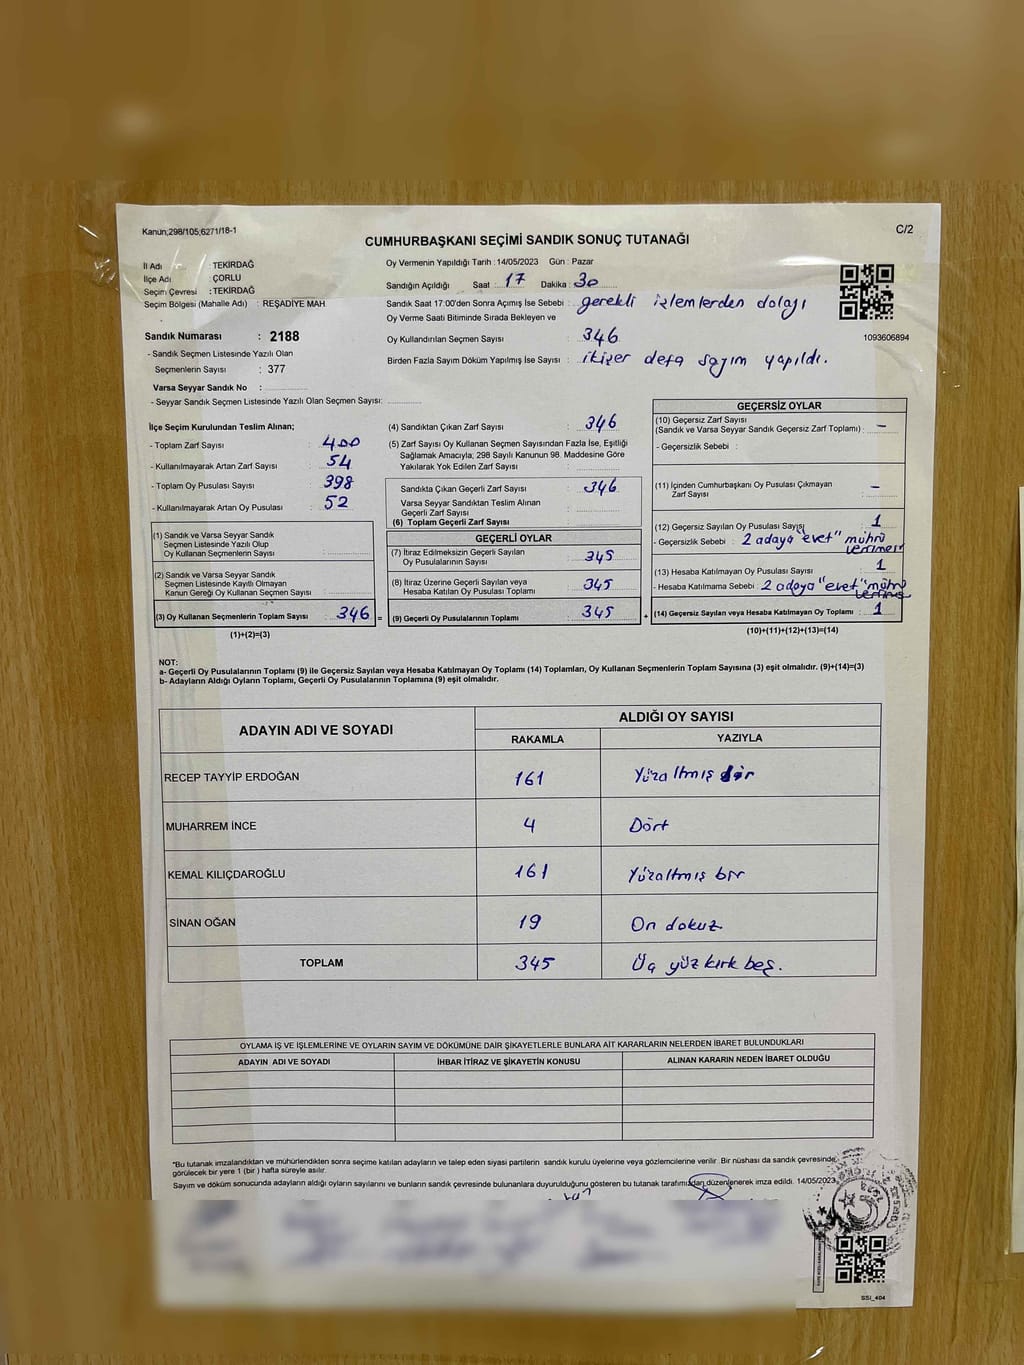 Kanun;298/105;6271/18-1
C/2
CUMHURBAŞKANI SEÇİMİ SANDIK SONUÇ TUTANAĞI
İl Adı : TEKİRDAĞ
İlçe Adı : ÇORLU
Seçim Çevresi : TEKİRDAĞ
Seçim Bölgesi (Mahalle Adı) : REŞADİYE MAH
Sandık Numarası : 2188
- Sandık Seçmen Listesinde Yazılı Olan
Seçmenlerin Sayısı : 377
Varsa Seyyar Sandık No :
- Seyyar Sandık Seçmen Listesinde Yazılı Olan Seçmen Sayısı:
Oy Vermenin Yapıldığı Tarih : 14/05/2023 Gün : Pazar
Sandığın Açıldığı Saat : 17 Dakika : 30
Sandık Saat 17:00'den Sonra Açımış İse Sebebi : gerekli izlemlerden dolayı
Oy Verme Saati Bitiminde Sırada Bekleyen ve
Oy Kullandırılan Seçmen Sayısı : 346
Birden Fazla Sayım Döküm Yapılmış İse Sayısı : ikizer defa sayım yapıldı.
1093606894
İlçe Seçim Kurulundan Teslim Alınan;
- Toplam Zarf Sayısı : 400
- Kullanılmayarak Artan Zarf Sayısı : 54
- Toplam Oy Pusulası Sayısı : 398
- Kullanılmayarak Artan Oy Pusulası : 52
(1) Sandık ve Varsa Seyyar Sandık
Seçmen Listesinde Yazılı Olup
Oy Kullanan Seçmenlerin Sayısı :
(2) Sandık ve Varsa Seyyar Sandık
Seçmen Listesinde Kayıtlı Olmayan
Kanun Gereği Oy Kullanan Seçmen Sayısı :
(3) Oy Kullanan Seçmenlerin Toplam Sayısı : 346 =
(1)+(2)=(3)
(4) Sandıktan Çıkan Zarf Sayısı : 346
(5) Zarf Sayısı Oy Kullanan Seçmen Sayısından Fazla İse, Eşitliği
Sağlamak Amacıyla; 298 Sayılı Kanunun 98. Maddesine Göre
Yakılarak Yok Edilen Zarf Sayısı :
Sandıkta Çıkan Geçerli Zarf Sayısı : 346
Varsa Seyyar Sandıktan Teslim Alınan
Geçerli Zarf Sayısı :
(6) Toplam Geçerli Zarf Sayısı :
GEÇERLİ OYLAR
(7) İtiraz Edilmeksizin Geçerli Sayılan
Oy Pusulalarının Sayısı : 345
(8) İtiraz Üzerine Geçerli Sayılan veya
Hesaba Katılan Oy Pusulası Toplamı : 345
(9) Geçerli Oy Pusulalarının Toplamı : 345 +
GEÇERSİZ OYLAR
(10) Geçersiz Zarf Sayısı
(Sandık ve Varsa Seyyar Sandık Geçersiz Zarf Toplamı) : –
- Geçersizlik Sebebi :
(11) İçinden Cumhurbaşkanı Oy Pusulası Çıkmayan
Zarf Sayısı : –
(12) Geçersiz Sayılan Oy Pusulası Sayısı : 1
- Geçersizlik Sebebi : 2 adaya "evet" mührü
(13) Hesaba Katılmayan Oy Pusulası Sayısı : 1
- Hesaba Katılmama Sebebi : 2 adaya "evet" mührü
(14) Geçersiz Sayılan veya Hesaba Katılmayan Oy Toplamı : 1
(10)+(11)+(12)+(13)=(14)
NOT:
a- Geçerli Oy Pusulalarının Toplamı (9) ile Geçersiz Sayılan veya Hesaba Katılmayan Oy Toplamı (14) Toplamları, Oy Kullanan Seçmenlerin Toplam Sayısına (3) eşit olmalıdır. (9)+(14)=(3)
b- Adayların Aldığı Oyların Toplamı, Geçerli Oy Pusulalarının Toplamına (9) eşit olmalıdır.
ADAYIN ADI VE SOYADI ALDIĞI OY SAYISI
RAKAMLA YAZIYLA
RECEP TAYYİP ERDOĞAN 161 Yüzaltmış bir
MUHARREM İNCE 4 Dört
KEMAL KILIÇDAROĞLU 161 Yüzaltmış bir
SİNAN OĞAN 19 On dokuz
TOPLAM 345 Üç yüz kırk beş.
OYLAMA İŞ VE İŞLEMLERİNE VE OYLARIN SAYIM VE DÖKÜMÜNE DAİR ŞİKAYETLERLE BUNLARA AİT KARARLARIN NELERDEN İBARET BULUNDUKLARI
ADAYIN ADI VE SOYADI İHBAR İTİRAZ VE ŞİKAYETİN KONUSU ALINAN KARARIN NEDEN İBARET OLDUĞU
*Bu tutanak imzalandıktan ve mühürlendikten sonra seçime katılan adayların ve talep eden siyasi partilerin sandık kurulu üyelerine veya gözlemcilerine verilir. Bir nüshası da sandık çevresinde
görülecek bir yere 1 (bir ) hafta süreyle asılır.
Sayım ve döküm sonucunda adayların aldığı oyların sayılarını ve bunların sandık çevresinde bulunanlara duyurulduğunu gösteren bu tutanak tarafımızdan düzenlenerek imza edildi. 14/05/2023
SSI_404